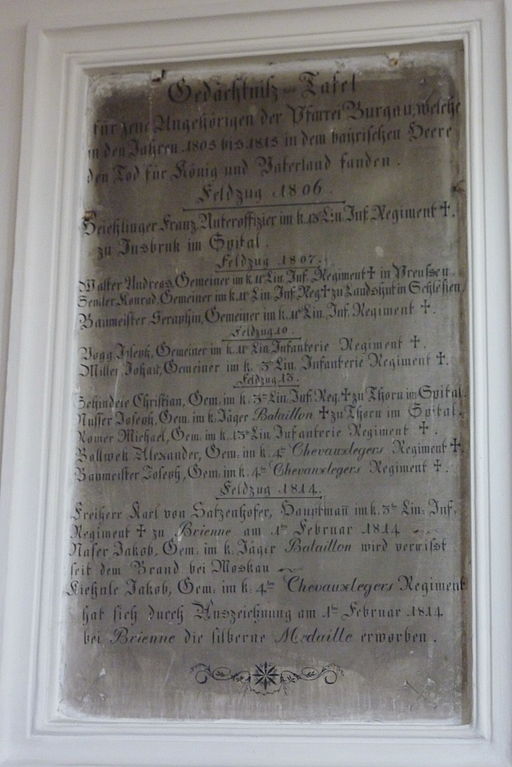 Gedächtniß- Tafel
für jene Angehörigen der Pfarrei Burgau, welche
in den Jahren 1805 bis 1815 in dem bayrischen Heere
den Tod für König und Vaterland fanden.
Feldzug 1806.
Franz, Unteroffizier im k. 13t Lin. Inf. Regiment †.
zu Insbruk im Spital.
Feldzug 1807.
Walter Andreas, Gemeiner im k. Lin. Inf. Regiment † in Preussen.
Konrad, Gemeiner im k. Lin. Inf. Reg. † zu Landshut in Schlesien.
Baumeister Seraphin, Gemeiner im k. Lin. Inf. Regiment †.
Feldzug
Vogg Joseph, Gemeiner im k. Lin. Infanterie Regiment †.
Miller Johan, Gemeiner im k. 3t Lin. Infanterie Regiment †.
Feldzug 13.
Christian, Gem. im k. 3t Lin. Inf. Reg. † zu Thorn im Spital.
Nusser Joseph, Gem. im k. Jäger Bataillon † zu Thorn im Spital.
Michael, Gem. im k. 13t Lin. Infanterie Regiment †.
Bollwek Alexander, Gem. im k. 4t Chevauxlegers Regiment †.
Baumeister Joseph, Gem. im k. 4t Chevauxlegers Regiment †.
Feldzug 1814.
Freiherr Karl von Satzenhofer, Hauptmañ im k. Lin. Inf.
Regiment † zu Brienne am 1ten Februar 1814
Naser Jakob, Gem. im k. Jäger Bataillon wird vermißt
seit dem Brand bei Moskau
Jakob, Gem. im k. 4ten Chevauxlegers Regiment
hat sich durch Auszeichnung am 1ten Februar 1814
bei Brienne die silberne Medaille erworben.